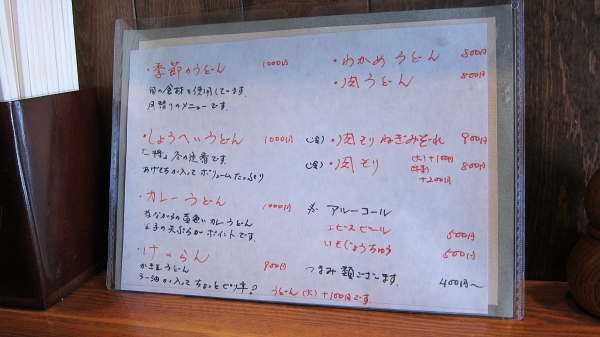 ・季節のうどん 1000円
旬の食材を使用しています.
月替りのメニューです.
・しょうへいうどん 1000円
冬の定番です
あげもちが入って ボリュームたっぷり
・カレーうどん 1000円
カレーうどん
の天ぷらがポイントです.
・けいらん 900円
かきまうどん
ラー油が入って ちょっとピリ辛?
うどん(大)+100円です
・わかめうどん 800円
・肉うどん 800円
(冷)・肉もりねぎみぞれ 900円
(冷)・肉もり (大)+100円 800円
+200円
アルーコール
エビスビール 500円
いもじょうちゅう 500円
つまみ類ございます. 400円〜